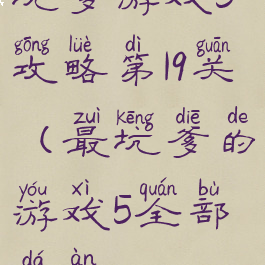 游戏5
gōng lüè dì guān
攻略第19关
zuì kēng diē de
（最坑爹的
yóu xì quán bù
游戏5全部
dá àn